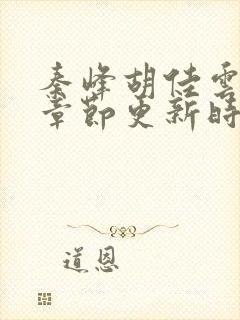 秦峰胡佳雲
章節更新時
道恩